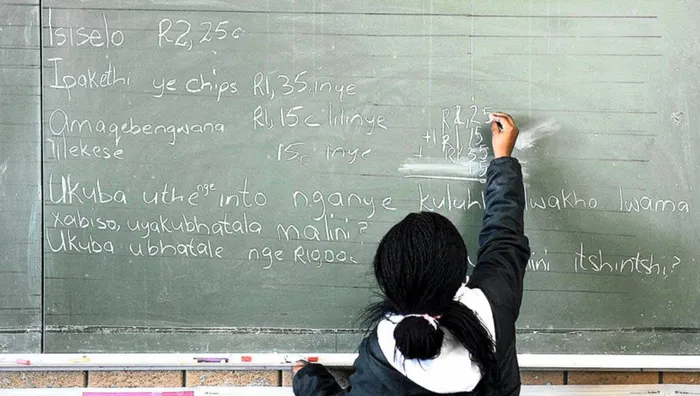 Isiselo R2,25c
Ipakethi ye chips R1,35 inye
Amaqebengwana R1,15c lilinye
Ilekese 15c inye
R2,25
+ R1,15
R1,35
15
Ukuba uthe nge into nganye kuluhlu lwakho lwama
xabiso, uyakubhatala malini?
Ukuba ubhatale nge itshintshi?